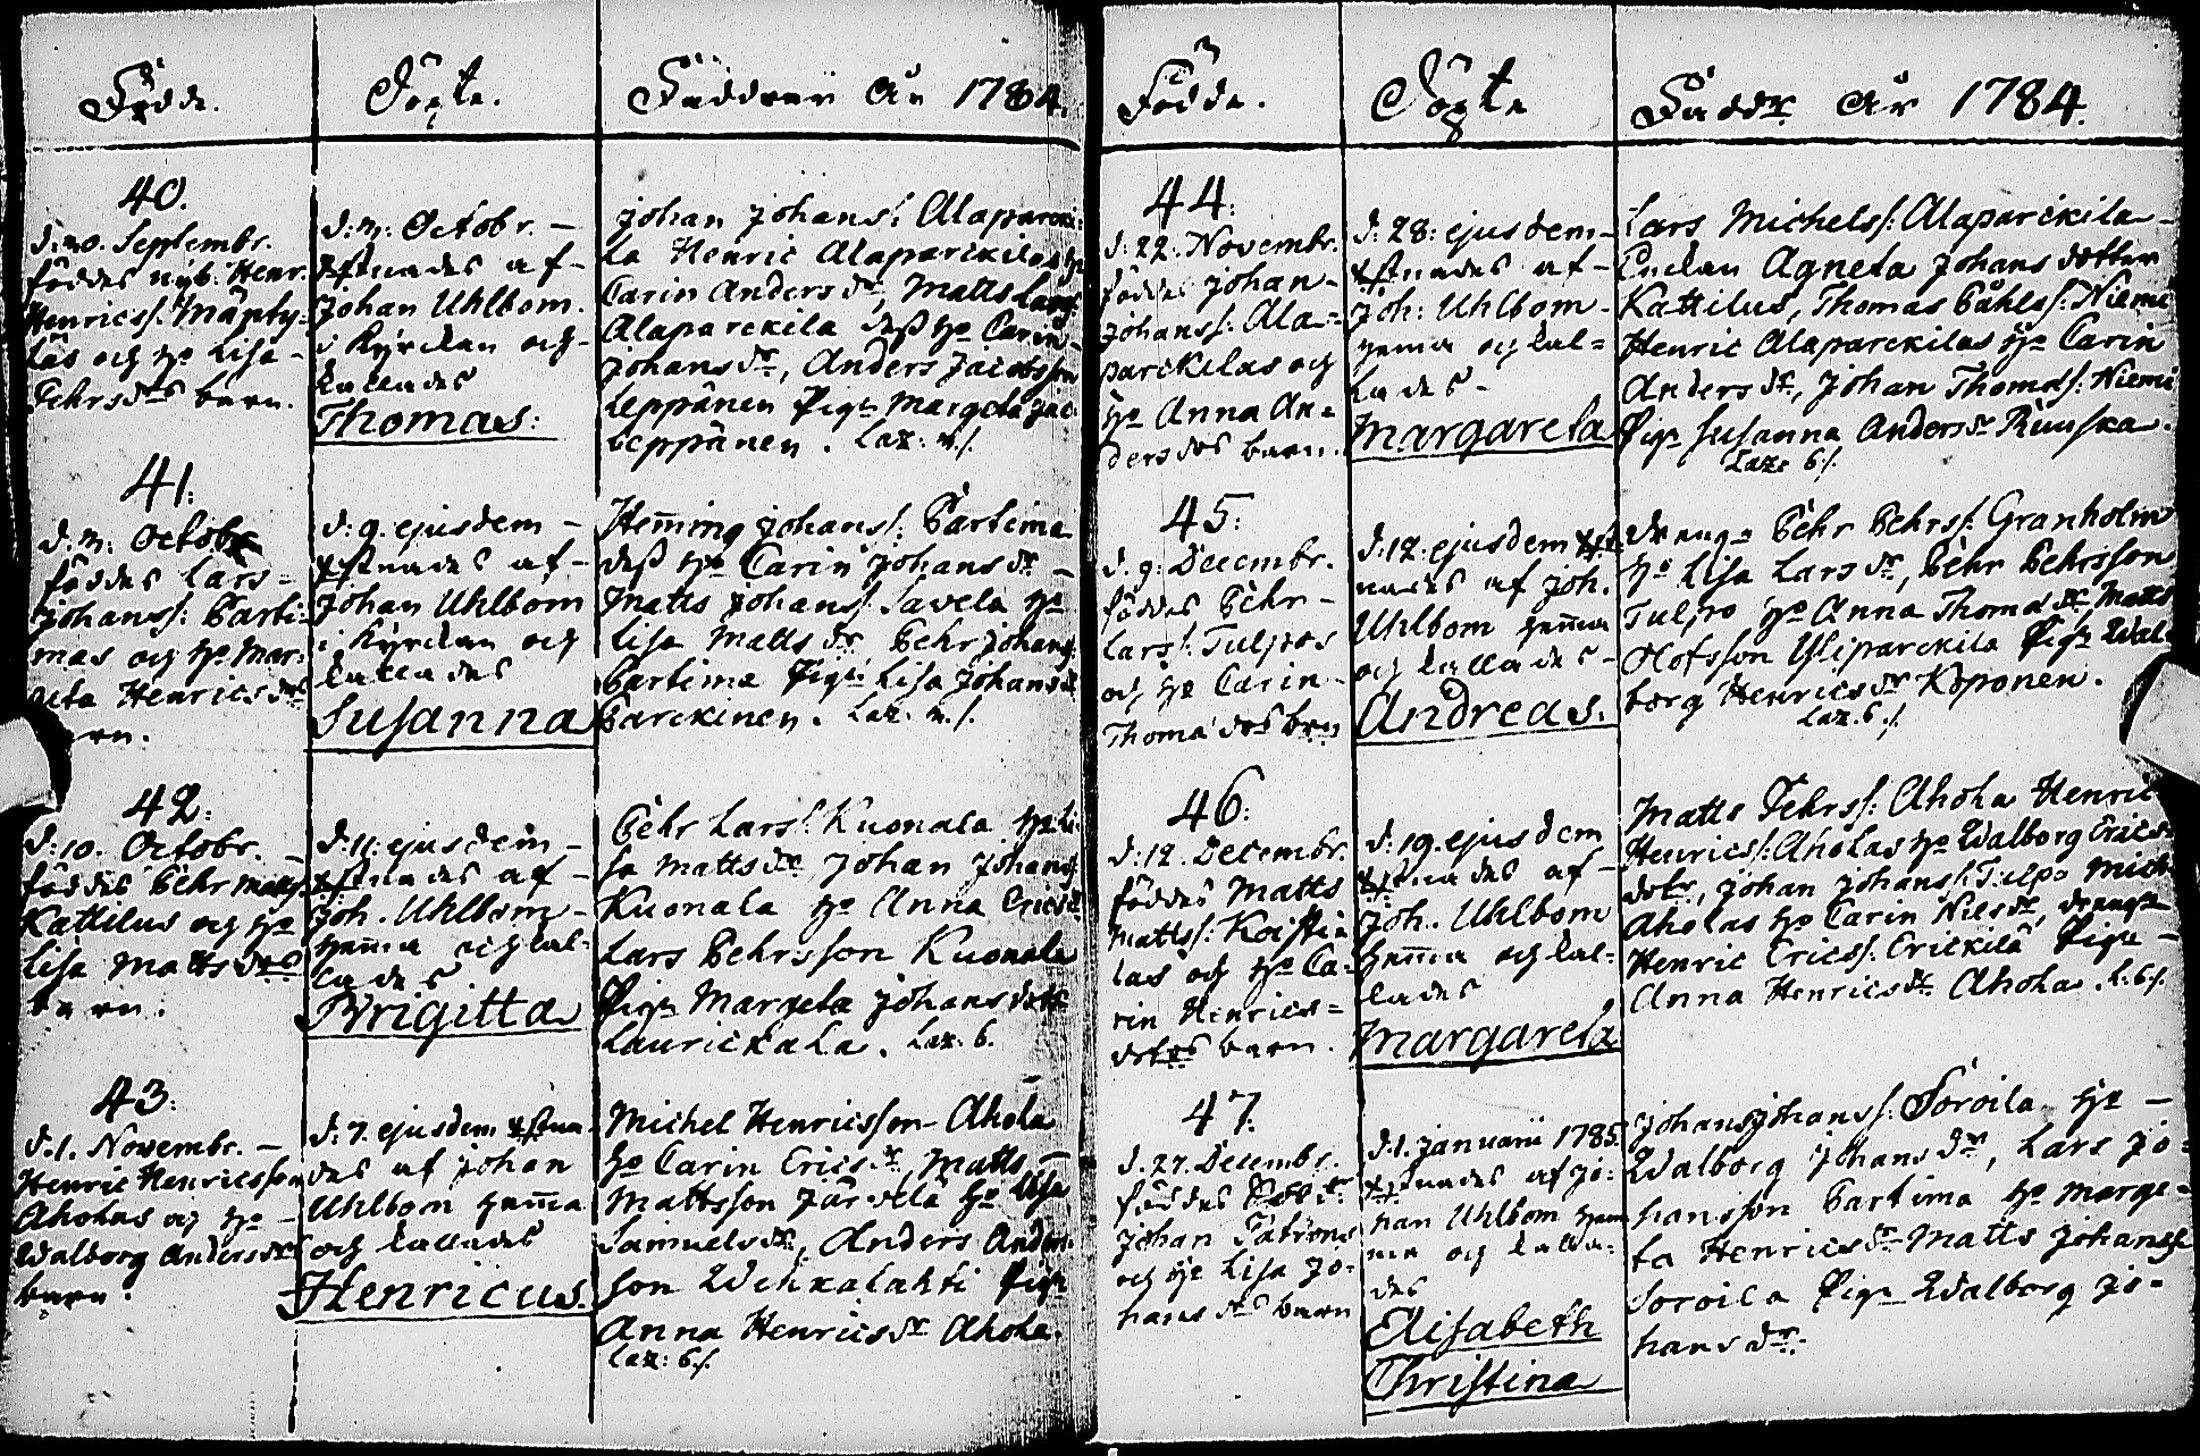 Födde.
Döpte.
Faddrar År 1784.
40.
d: 30. Septembr.
föddes nyb. Henr.
Henricss: Mänty-
läs och h:o Lisa
Pehrs d:rs barn.
d: 3: Octobr. –
xstnades af –
Johan Uhlbom.
i kyrckan och
kallades
Thomas:
Johan Johans: Alaparcki-
la Henric Alaparckilas h:o
Carin Anders d:r, Matts Lars:
Alaparckila dess h:o Carin
Johans d:r, Anders Jacobsson
Leppänen Pig: Margeta Jac:
Leppänen.
41:
d: 3: Octobr
föddes Lars
Johanss: Parti-
mas och h:o Mar-
geta Henrics d:rs
barn.
d: 9. ejusdem –
xstnades af –
Johan Uhlbom
i kyrckan och
kallades
Susanna
Heming Johans: Partima
dess h:o Carin Johans d:r –
Matts Johanss: Savela h:o
Lisa Matts d:r Pehr Johans:
Partima Pig: Lisa Johans d:r
Parckinen.
42:
d: 10. Octobr. –
föddes Pehr Matts:
Kattilus och h:o
Lisa Matts d:rs
barn.
d: 11: ejusdem –
xstnades af –
Joh. Uhlbom –
hema och kal-
lades
Brigitta
Pehr Lars: Kuonala h:o Li-
sa Matts d:r, Johan Johans:
Kuonala h:o Anna Erics d:r
Lars Pehrsson Kuonala
Pig: Margeta Johans dott:
Laurickala. Lax: 6.
43:
d. 1. Novembr. –
Henric Henricsson
Aholas och h:o –
Walborg Anders d:rs
barn.
d: 7. ejusdem xstna-
des af Johan
Uhlbom hema
och kallades
Henricus.
Michel Henricsson Ahola
h:o Carin Erics d:r, Matts –
Mattsson Järvelä h:o Lisa
Samuels d:r, Anders Anders-
son Wehkalahti Pig:
Anna Henrics d:r Ahola.
Lax: 6 s.
Födde.
Döpte
Faddr. År 1784.
44:
d: 22. Novembr.
föddes Johan
Johanss: Ala-
parckilas och
h:o Anna An-
ders d:rs barn.
d: 28: ejusdem –
xstnades af –
Joh: Uhlbom –
hema och kal-
lades –
Margareta
Lars Michels: Alaparckila –
Enckan Agneta Johans dotter
Kattilus, Thomas Påhls: Niemi
Henric Alaparckilas h:o Carin
Anders d:r, Johan Thomas: Niemi
Pig: Susanna Anders d:r Ruuska.
Lax: 6 s.
45:
d. 9: Decembr.
föddes Pehr –
Lars: Tulpos
och h:o Carin –
Thoma d:rs barn
d: 12: ejusdem xst-
nades af Joh.
Uhlbom hema
och kallades –
Andreas.
dreng: Pehr Pehrs: Granholm
h:o Lisa Lars d:r, Pehr Pehrsson
Tulpo h:o Anna Thoma d:r, Matts
Olofsson Yliparckila Pig: Wal-
borg Henrics d:r Koponen.
Lax. 6 s.
46:
d: 12. Decembr.
föddes Matts
Mattss: Koistia-
las och h:o Ca-
rin Henrics-
dotrs barn.
d: 19. ejusdem
xstnades af –
Joh. Uhlbom
hema och kal-
lades
Margareta
Matts Pehrss: Ahola Henric
Henrics: Aholas h:o Walborg Erics-
dotr, Johan Johans: Tulpo Mich:
Aholas h:o Carin Nils d:r, drengn
Henric Ericss: Erickilä Pig: –
Anna Henrics d:r Ahola. L: 6 s.
47.
d. 27. Decembr.
föddes
Johan
och h:o Lisa Jo-
hans d:rs barn
d. 1. Januarii 1785.
xstnades af Jo-
han Uhlbom hem-
ma och kalla-
des
Elisabeth
Christina
Johan Johanss: Soroila h:o –
Walborg Johans d:r, Lars Jo-
hansson Partima h:o Marge-
ta Henrics d:r Matts Johanss:
Soroila Pig: Walborg Jo-
hans d:r.